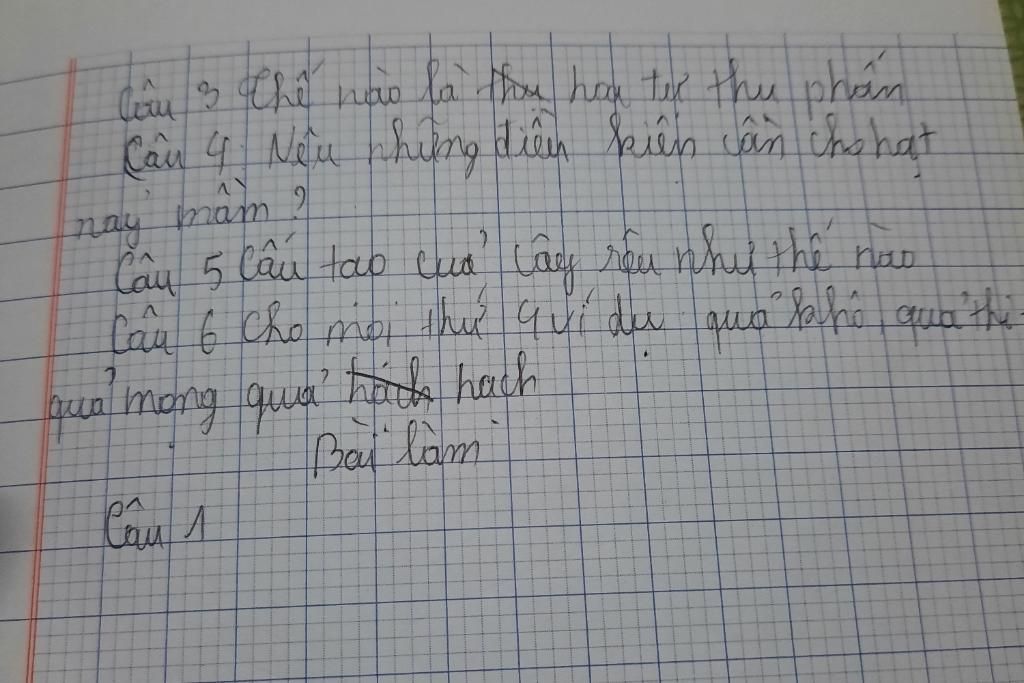 Câu 3 Thế nào là thụ hoa tự thụ phấn
Câu 4. Nêu những điều kiện cần cho hạt
nảy mầm?
Câu 5 Cấu tạo cuả Cây rêu như thế nào
Câu 6 Cho mỗi thứ 4 ví dụ quả khô, quả thị
quả mọng quả hách hạch
Bài làm
Câu 1